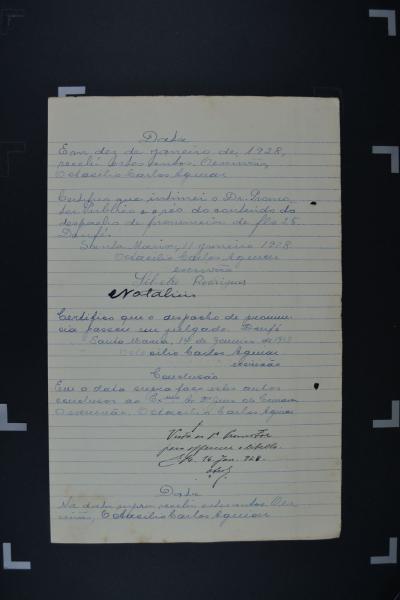 Data
Em dez de Janeiro de 1928,
recebi estes autos. O escrivão,
Octacilio Carlos Aguiar
Certifico que intimei o Dr. Promo-
tor Publico e o réo do conteúdo do
despacho de pronuncia de fls 28.
Doufé.
Santa Maria, 11 Janeiro 1928
Octacilio Carlos Aguiar
escrivão
Rodrigues
Certifico que o despacho de pronun-
cia passou em julgado. Doufé
Santa Maria, 14 de Janeiro de 1928
Octacilio Carlos Aguiar
escrivão
Conclusão
Em a data supra faço estes autos
conclusos ao Dr. Juiz de Comarca
O escrivão, Octacilio Carlos Aguiar
Vista ao Dr. Promotor
para offerecer o libello.
16 Jan. 928
Data
Na data supra recebi estes autos. O es-
crivão, Octacilio Carlos Aguiar